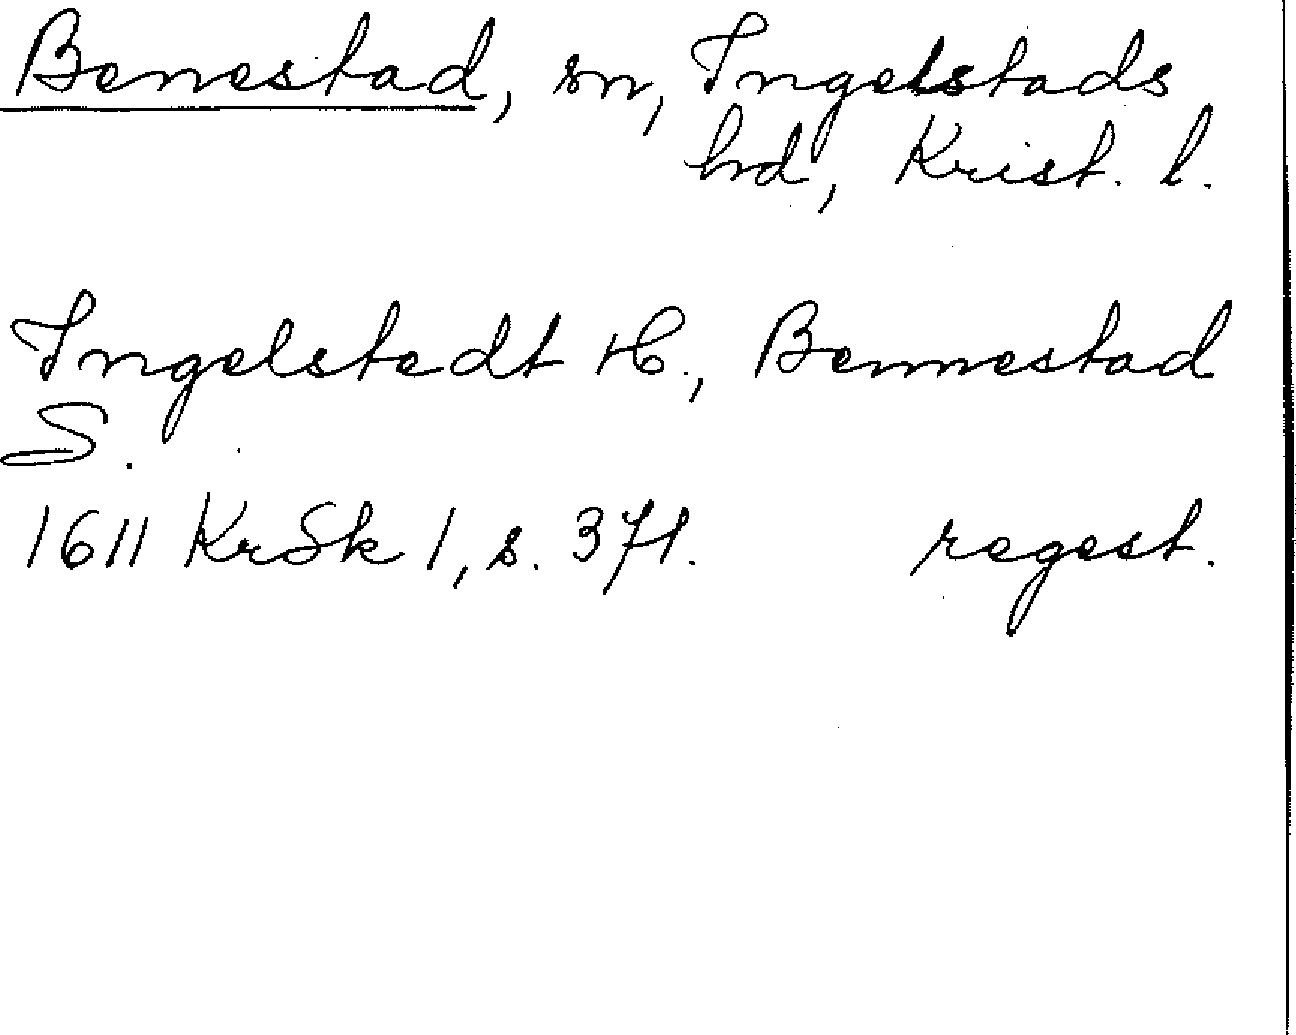 Benestad, sn, Ingelstads
hrd, Krist. l.
Ingelstedt H., Bennestad
S.
1611 KrSk 1, s. 371. regest.